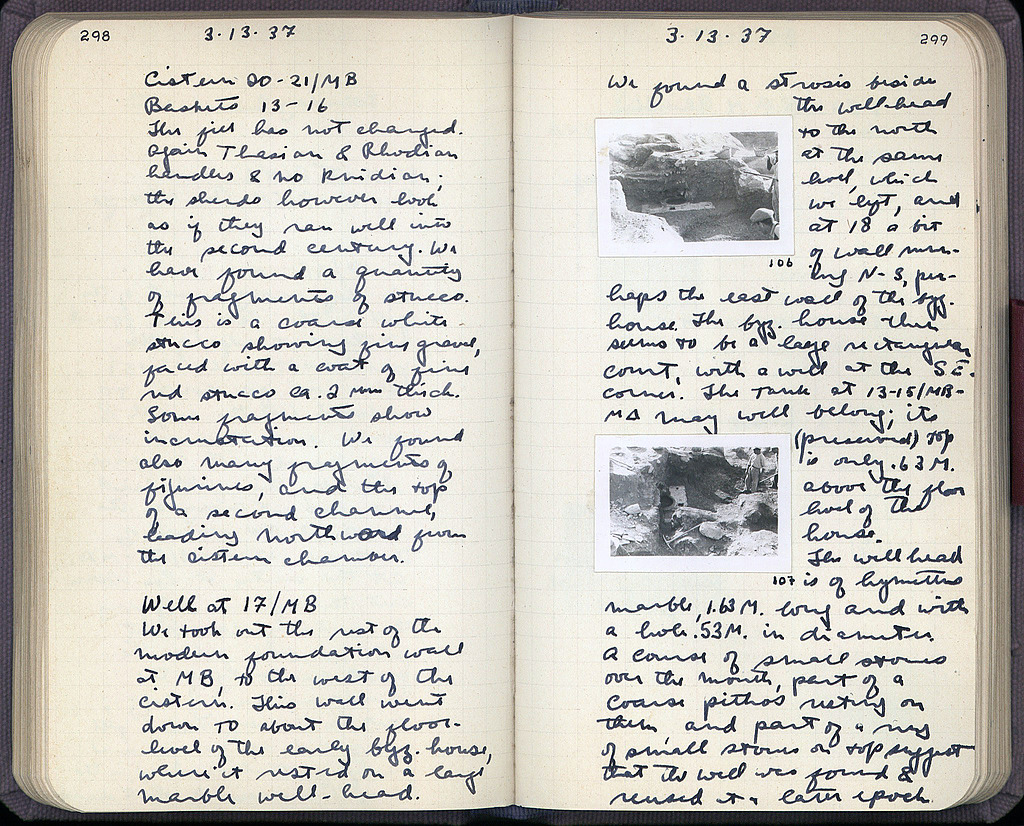 298
3·13·37
Cistern 20-21/MB
Baskets 13-16
The fill has not changed.
Again Thasian & Rhodian
handles & no Knidian;
the sherds however look
as if they ran well into
the second century. We
have found a quantity
of fragments of stucco.
This is a coarse white
stucco showing fine gravel,
faced with a coat of fine
red stucco ca. 2 mm thick.
Some fragments show
incrustation. We found
also many fragments of
figurines, and the top
of a second channel,
leading northward from
the cistern chamber.
Well at 17/MB
We took out the rest of the
modern foundation wall
at MB, to the west of the
cistern. This wall went
down to about the floor-
level of the early byz. house,
where it rested on a large
marble well-head.
3·13·37
299
We found a strosis beside
the wellhead
to the north
at the same
level, which
we left, and
at 18 a bit
of wall runn-
ing N-S, per-
106
haps the east wall of the byz.
house. The byz. house then
seems to be a large rectangular
court, with a well at the SE.
corner. The tank at 13-15/MB-
MΔ may well belong; its
(preserved) top
is only .63 M.
above the floor
level of the
house.
The well head
107
is of hymettus
marble, 1.63 M. long and with
a hole .53 M. in diameter.
A course of small stones
over the mouth, part of a
coarse pithos resting on
them and part of a ring
of small stones on top suggest
that the well was found &
reused at a later epoch.